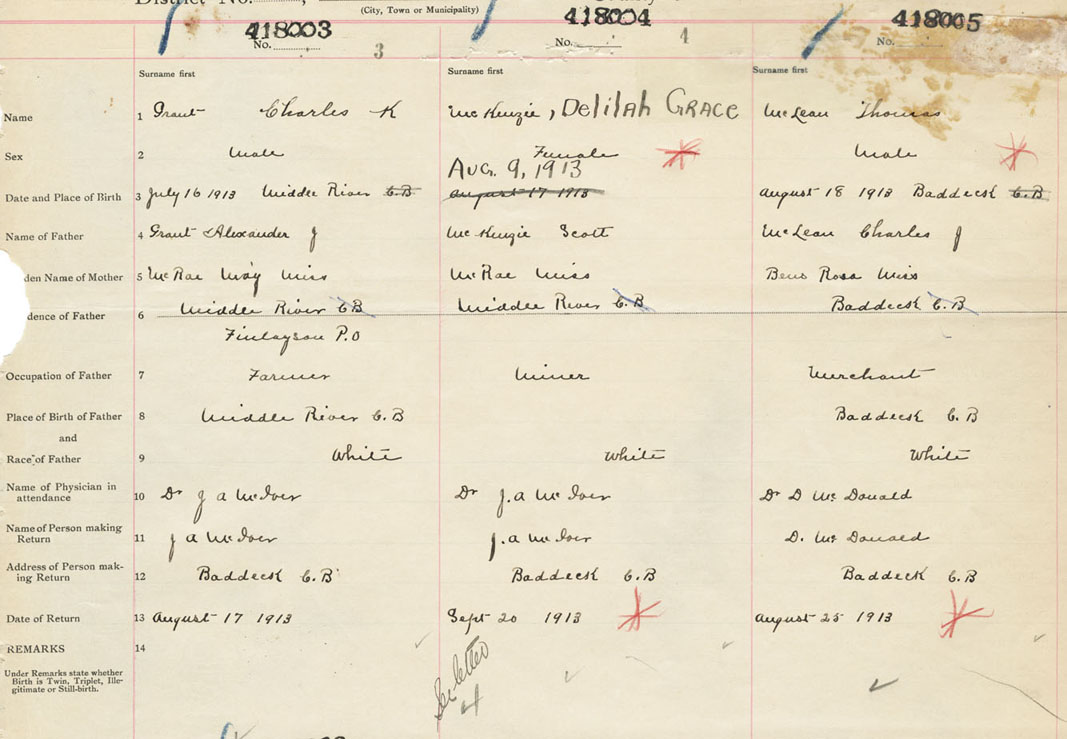 District No. ,
(City, Town or Municipality)
418003 418004 418005
No. 3 No. 4 No.
Surname first Surname first Surname first
Name 1 Grant Charles K McKenzie, Delilah GRACE McLean Thomas
Sex 2 Male Female Male
AUG. 9, 1913
Date and Place of Birth 3 July 16 1913 Middle River C.B august 17 1913 august 18 1913 Baddeck C.B
Name of Father 4 Grant Alexander J McKenzie Scott McLean Charles J
den Name of Mother 5 McRae May Miss McRae Miss Rosa Miss
dence of Father 6 Middle River C.B Middle River C.B Baddeck C.B
Finlayson P.O
Occupation of Father 7 Farmer Miner Merchant
Place of Birth of Father 8 Middle River C.B Baddeck C.B
and
Race of Father 9 White White White
Name of Physician in
attendance 10 Dr J a McIver Dr J. a McIver Dr D McDonald
Name of Person making
Return 11 J a McIver J. a McIver D. McDonald
Address of Person mak-
ing Return 12 Baddeck C.B Baddeck C.B Baddeck C.B
Date of Return 13 august 17 1913 Sept 20 1913 august 25 1913
REMARKS 14
Under Remarks state whether
Birth is Twin, Triplet, Ille-
gitimate or Still-birth.
See letter
4